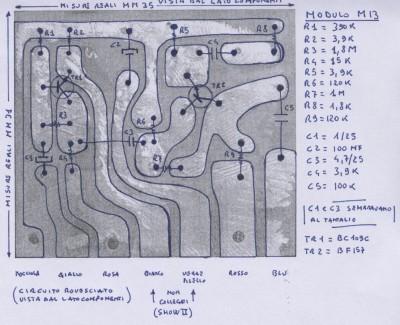 MISURE REALI MM 35 VISTA DAL LATO COMPONENTI
MISURE REALI MM 31
R1
R2
C2
R5
C4
R8
TR1
TR2
R3
C3
R6
C5
C1
R4
R7
R9
MODULO M13
R1 = 390K
R2 = 3,9K
R3 = 1,8M
R4 = 15K
R5 = 3,9K
R6 = 120K
R7 = 1M
R8 = 1,8K
R9 = 120K
C1 = 1/25
C2 = 100 MF
C3 = 4,7/25
C4 = 3,9K
C5 = 100K
C1 e C3 SEMBRAVANO
AL TANTALIO
TR1 = BC109C
TR2 = BF157
GIALLO
ROSA
BIANCO
VERDE
ROSSO
BLU
(CIRCUITO ROVESCIATO
VISTA DAL LATO COMPONENTI)
NON
COLLEGATI
(SHOW II)